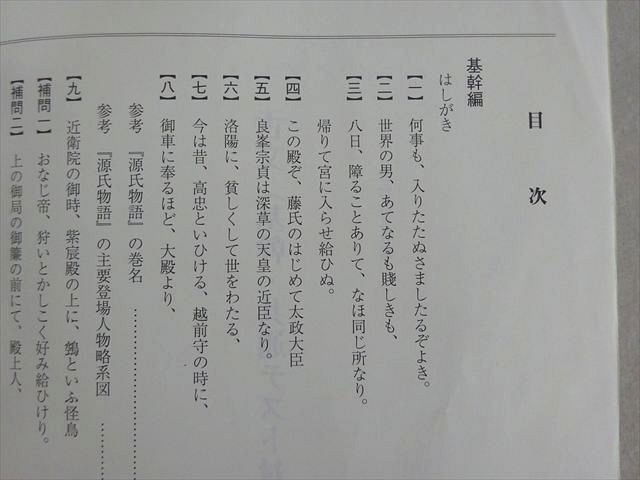 目次
基幹編
はしがき
【一】 何事も、入りたたぬさましたるぞよき。
【二】 世界の男、あてなるも賤しきも、
【三】 八日、障ることありて、なほ同じ所なり。
帰りて宮に入らせ給ひぬ。
【四】 この殿ぞ、藤氏のはじめて太政大臣
【五】 良峯宗貞は深草の天皇の近臣なり。
【六】 洛陽に、貧しくして世をわたる、
【七】 今は昔、高忠といひける、越前守の時に、
【八】 御車に奉るほど、大殿より、
参考 『源氏物語』の巻名 ……………………
参考 『源氏物語』の主要登場人物略系図 ……
【九】 近衛院の御時、紫宸殿の上に、鵼といふ怪鳥
【補問一】 おなじ帝、狩いとかしこく好み給ひけり。
【補問二】 上の御局の御簾の前にて、殿上人、